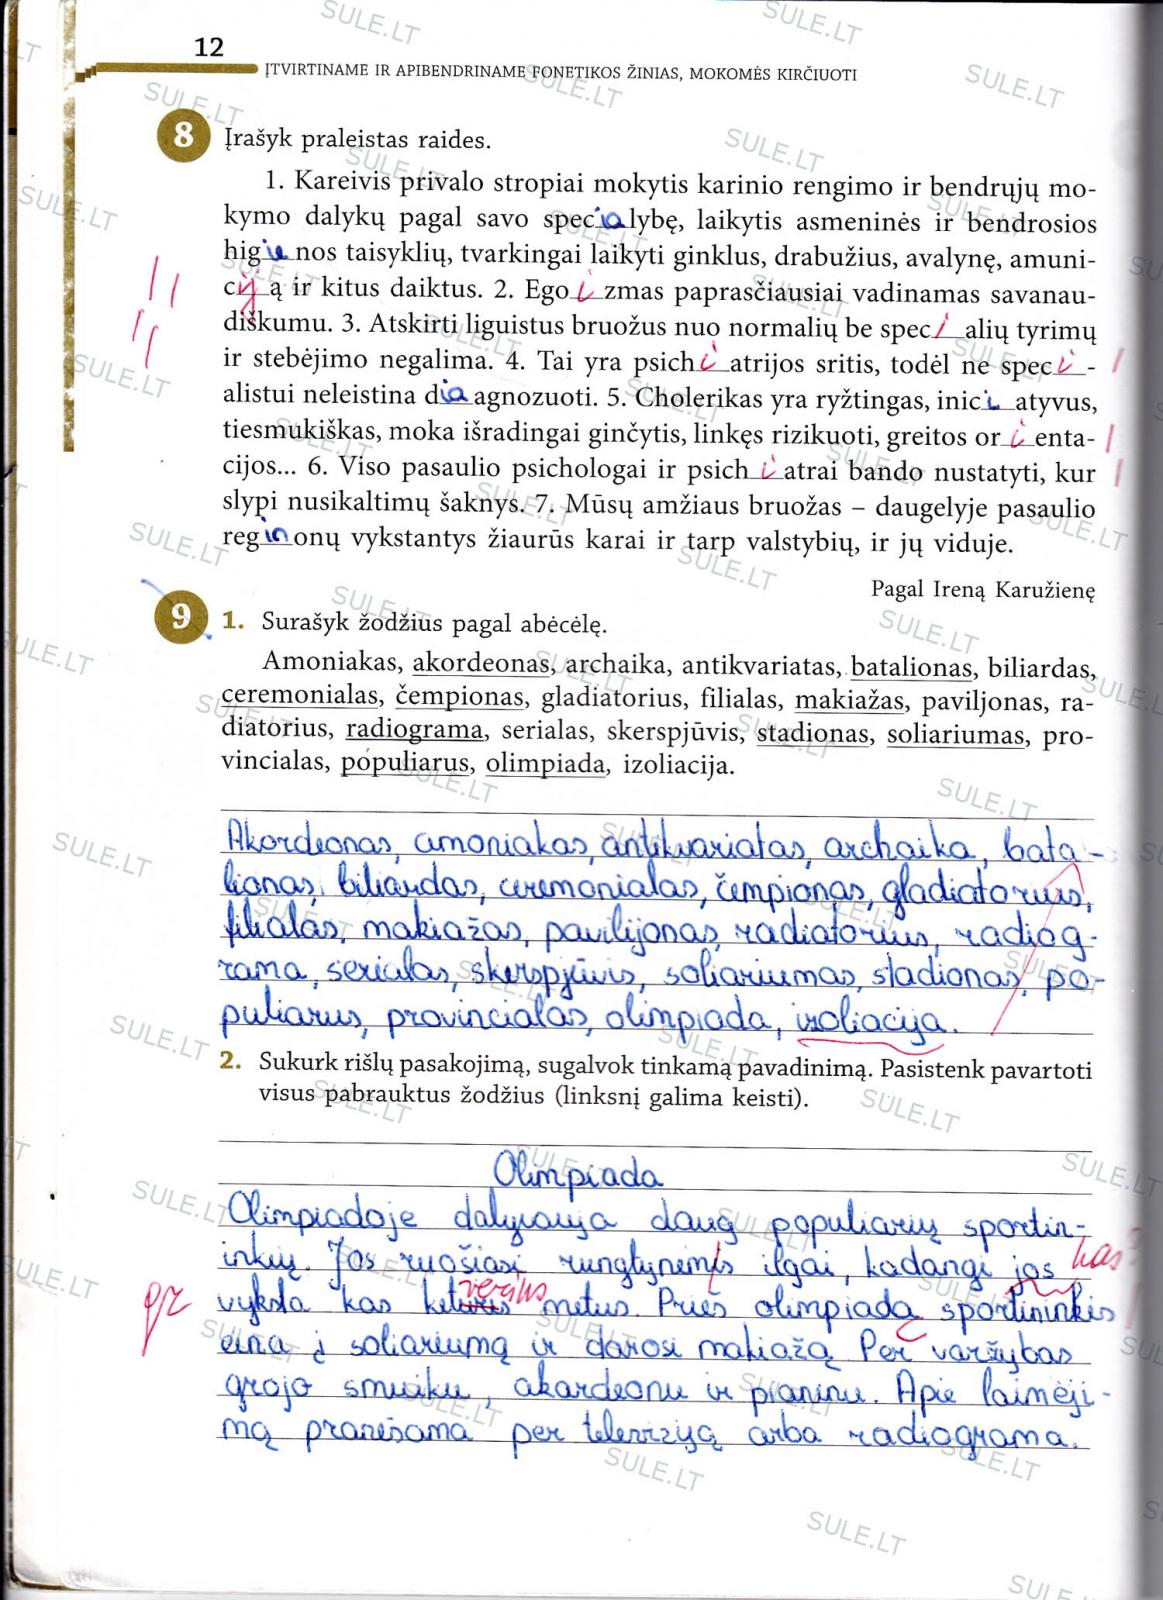 12
ĮTVIRTINAME IR APIBENDRINAME FONETIKOS ŽINIAS, MOKOMĖS KIRČIUOTI
8 Įrašyk praleistas raides.
1. Kareivis privalo stropiai mokytis karinio rengimo ir bendrųjų mo-
kymo dalykų pagal savo specialybę, laikytis asmeninės ir bendrosios
higienos taisyklių, tvarkingai laikyti ginklus, drabužius, avalynę, amuni-
ciją ir kitus daiktus. 2. Egoizmas paprasčiausiai vadinamas savanau-
diškumu. 3. Atskirti liguistus bruožus nuo normalių be specialių tyrimų
ir stebėjimo negalima. 4. Tai yra psichiatrijos sritis, todėl ne speci-
alistui neleistina diaagnozuoti. 5. Cholerikas yra ryžtingas, iniciatyvus,
tiesmukiškas, moka išradingai ginčytis, linkęs rizikuoti, greitos orienta-
cijos... 6. Viso pasaulio psichologai ir psichiatrai bando nustatyti, kur
slypi nusikaltimų šaknys. 7. Mūsų amžiaus bruožas – daugelyje pasaulio
regionų vykstantys žiaurūs karai ir tarp valstybių, ir jų viduje.
Pagal Ireną Karužienę
9 1. Surašyk žodžius pagal abėcėlę.
Amoniakas, akordeonas, archaika, antikvariatas, batalionas, biliardas,
ceremonialas, čempionas, gladiatorius, filialas, makiažas, paviljonas, ra-
diatorius, radiograma, serialas, skerspjūvis, stadionas, soliariumas, pro-
vincialas, populiarus, olimpiada, izoliacija.
Akordeonas, amoniakas, antikvariatas, archaika, bata-
lionas, biliardas, ceremonialas, čempionas, gladiatorius,
filialas, makiažas, pavilijonas, radiatorius, radiog-
rama, serialas, skerspjūvis, soliariumas, stadionas, po-
puliarus, provincialas, olimpiada, izoliacija.
2. Sukurk rišlų pasakojimą, sugalvok tinkamą pavadinimą. Pasistenk pavartoti
visus pabrauktus žodžius (linksnį galima keisti).
Olimpiada
Olimpiadoje dalyvauja daug populiarių sportin-
inkių. Jos ruošiasi rungtynėms ilgai, kadangi jos kas?
vyksta kas keturis verius metus. Prieš olimpiadą sportininkės
eina į soliariumą ir darosi makiažą Per varžybas
grojo smuiku, akardeonu ir pianinu. Apie laimėji-
mą pranešama per televiziją arba radiograma.
SULE.LT